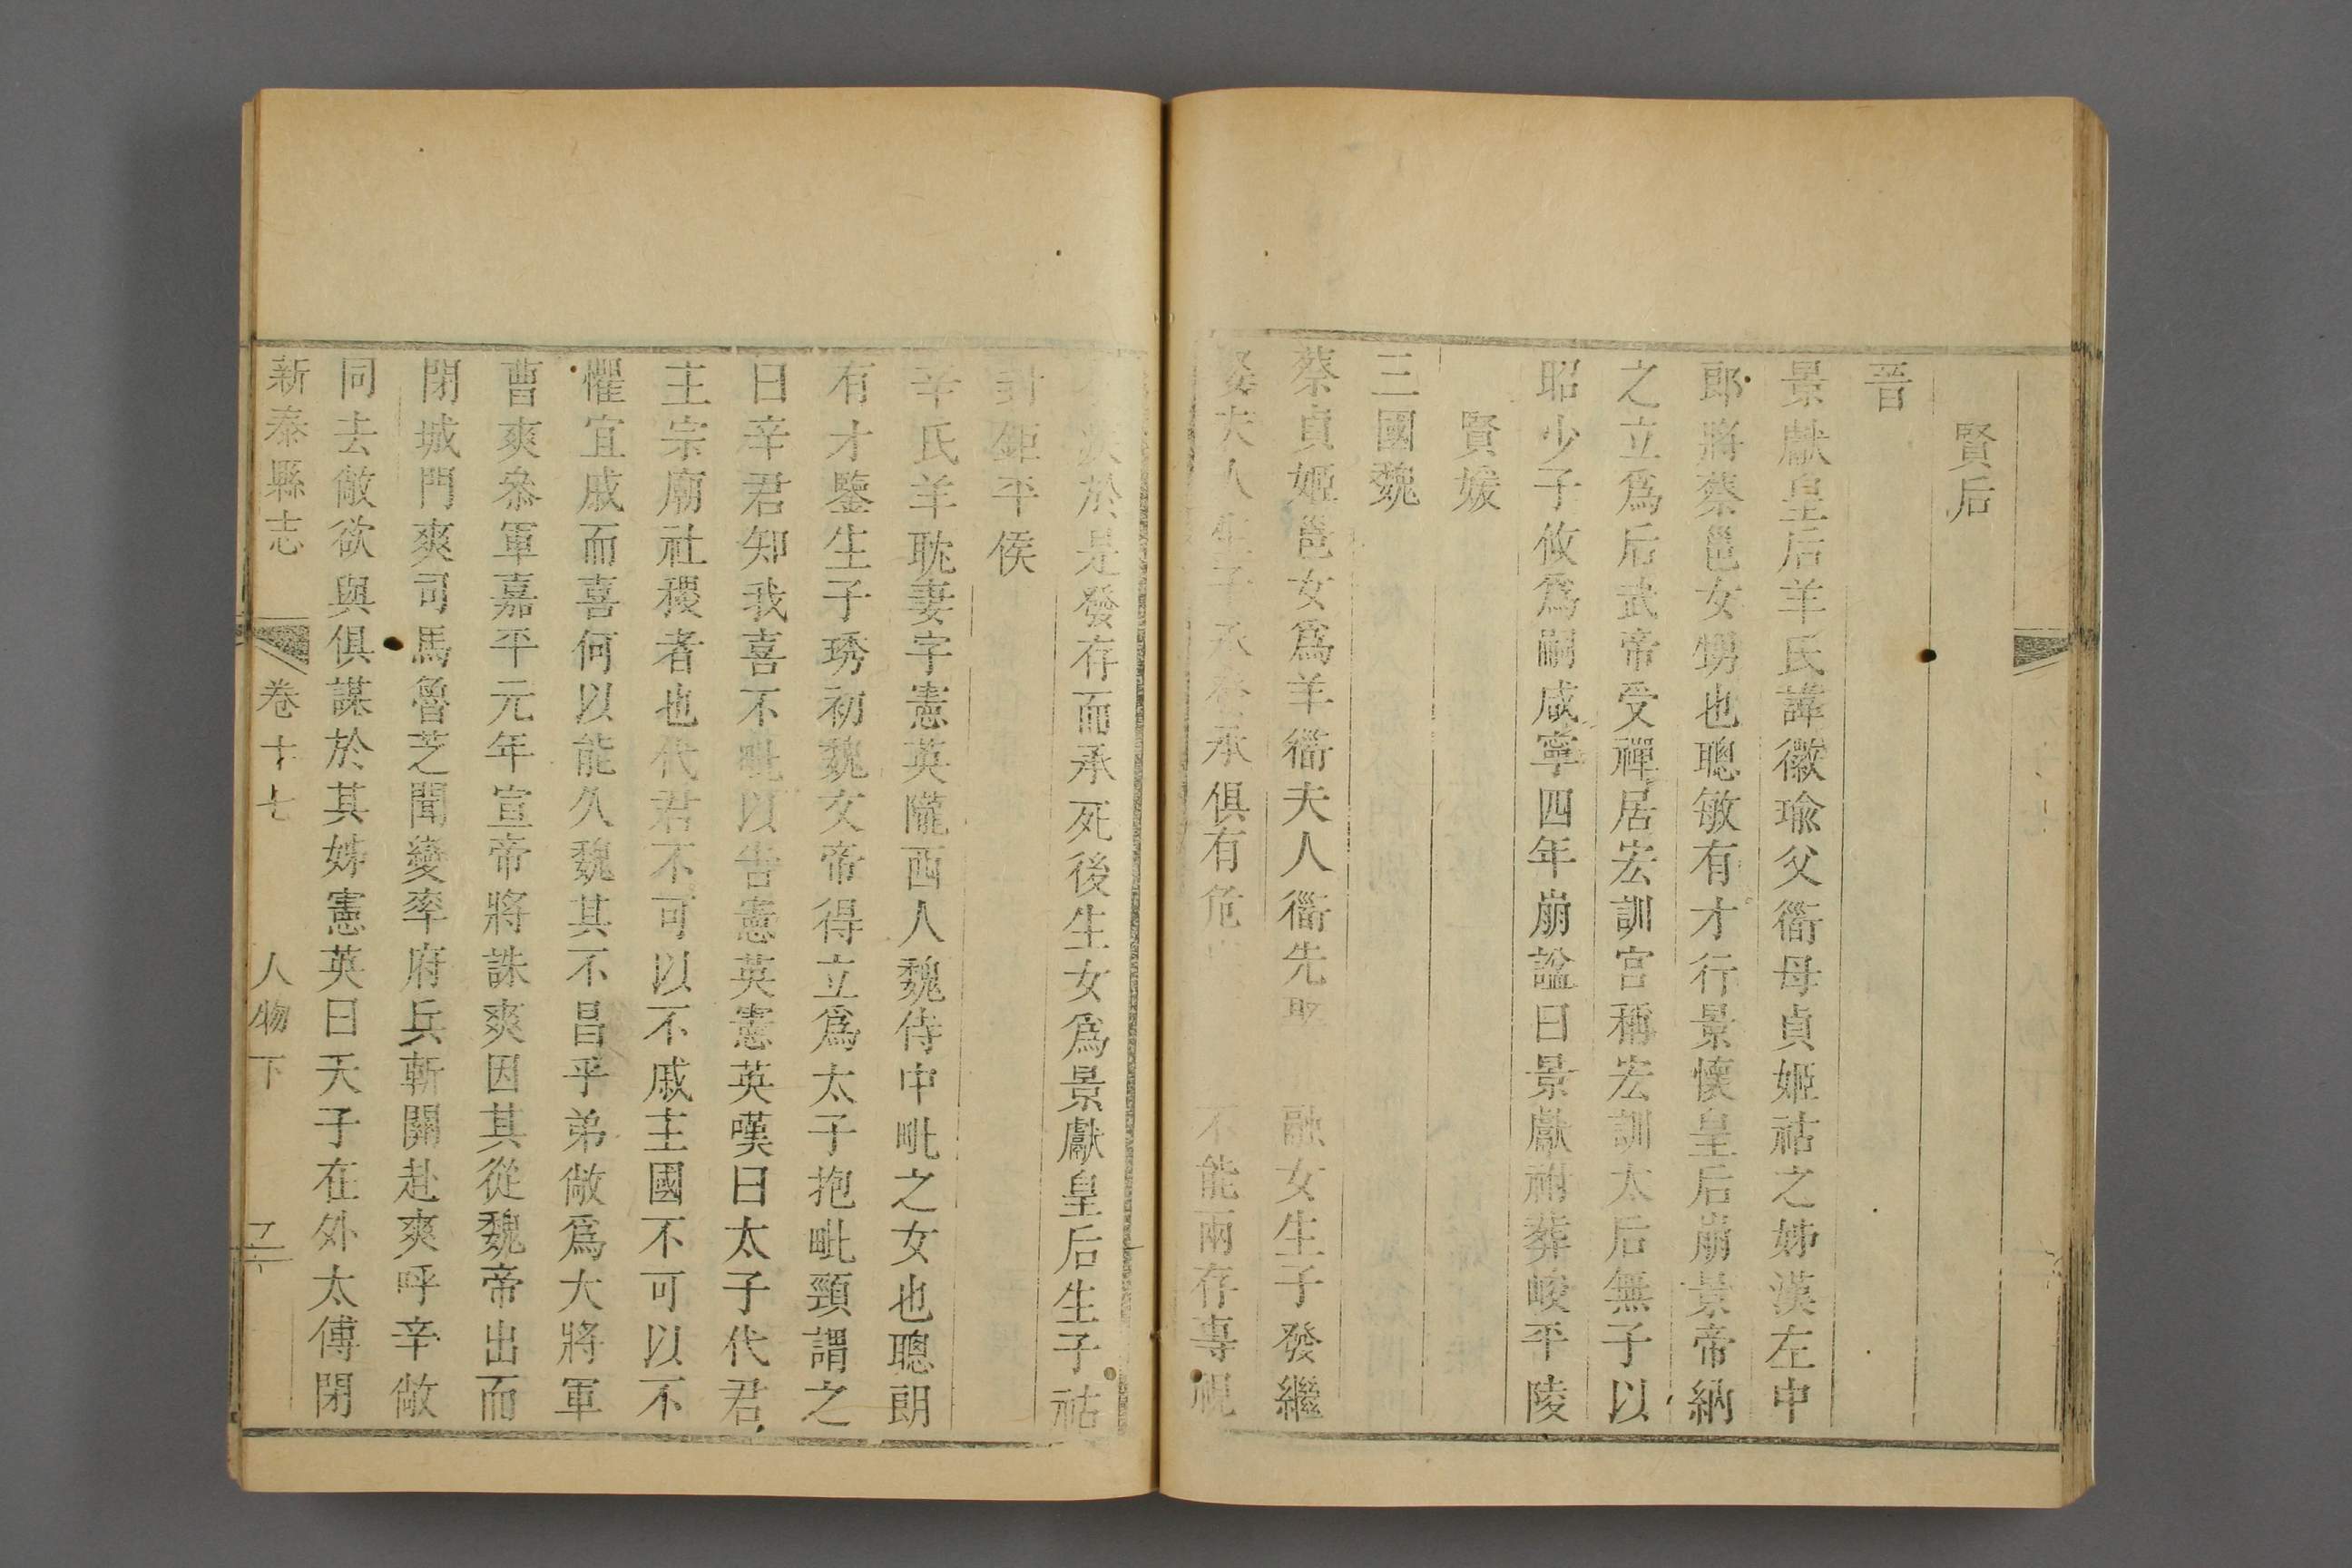 賢后
晉
景獻皇后羊氏諱徽瑜父衜母貞姬祜之姊漢左中
郎將蔡邕女甥也聰敏有才行景懷皇后崩景帝納
之立爲后武帝受禪居宏訓宮稱宏訓太后無子以
昭少子攸爲嗣咸寧四年崩諡曰景獻祔葬峻平陵
賢媛
三國魏
蔡貞姬邕女爲羊衜夫人衜先娶融女生子發繼
娶夫人生子承發承俱有危不能兩存專視
於是發存而承死後生女爲景獻皇后生子祜
封鉅平侯
辛氏羊耽妻字憲英隴西人魏侍中毗之女也聰朗
有才鑒生子琇初魏文帝得立爲太子抱毗頸謂之
曰辛君知我喜不毗以告憲英憲英嘆曰太子代君
主宗廟社稷者也代君不可以不戚主國不可以不
懼宜戚而喜何以能久魏其不昌乎弟敞爲大將軍
曹爽叅軍嘉平元年宣帝將誅爽因其從魏帝出而
閉城門爽司馬魯芝聞變率府兵斬關赴爽呼辛敞
同去敞欲與俱謀於其姊憲英曰天子在外太傅閉
新泰縣志 卷十七 人物下